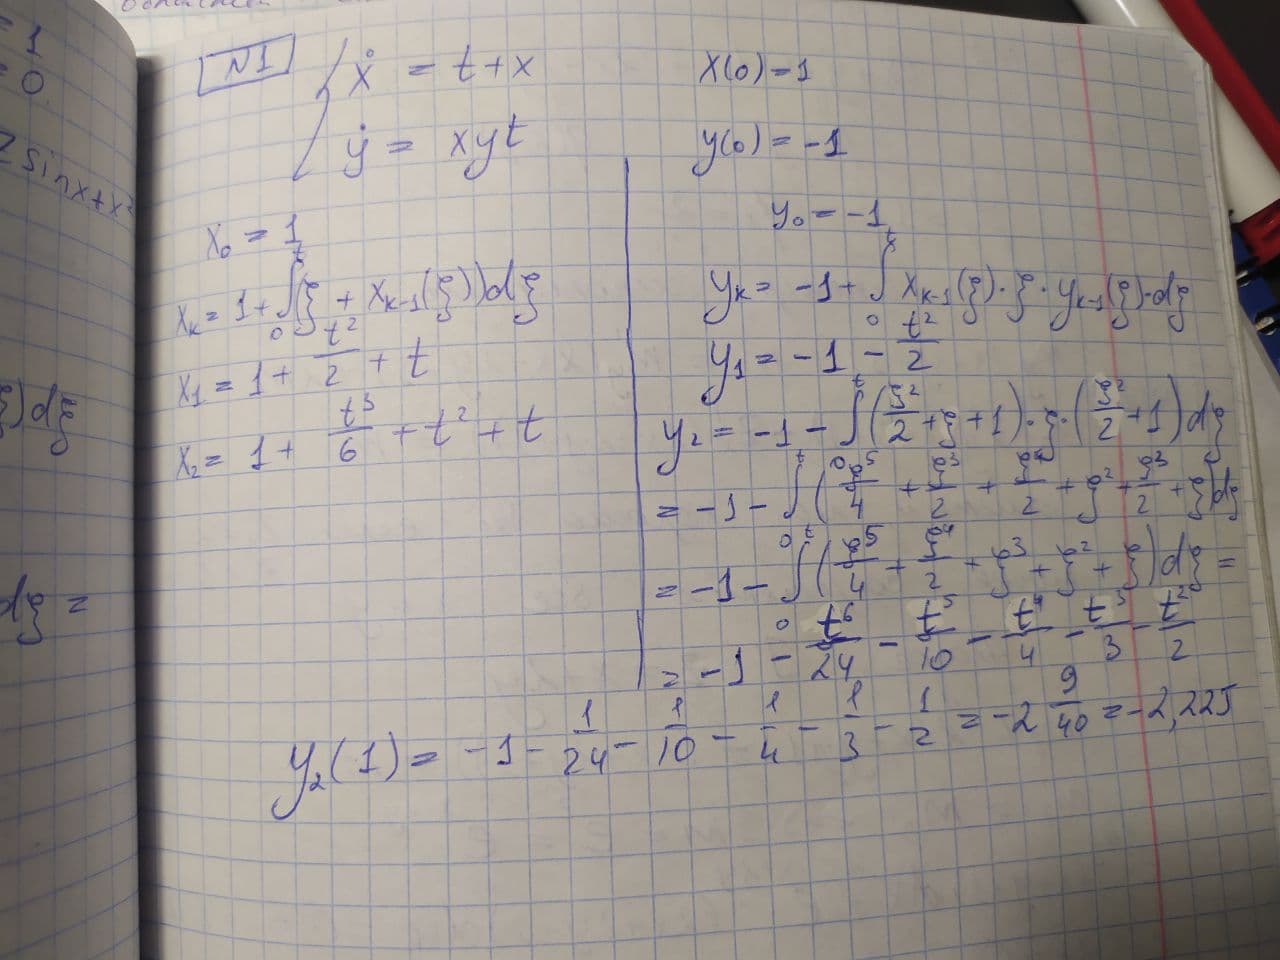 N1
ẋ = t+x    x(0)=1
ẏ = xyt    y(0)=-1
x₀ = 1
xₖ = 1 + ∫₀ᵗ(ξ + xₖ₋₁(ξ))dξ
x₁ = 1 + t²/2 + t
x₂ = 1 + t³/6 + t² + t
y₀ = -1
yₖ = -1 + ∫₀ᵗ xₖ₋₁(ξ)·ξ·yₖ₋₁(ξ)·dξ
y₁ = -1 - t²/2
y₂ = -1 - ∫₀ᵗ(ξ²/2 + ξ + 1)·ξ·(ξ²/2 + 1)dξ
= -1 - ∫₀ᵗ(ξ⁵/4 + ξ³/2 + ξ⁴/2 + ξ² + ξ³/2 + ξ)dξ
= -1 - ∫₀ᵗ(ξ⁵/4 + ξ⁴/2 + ξ³ + ξ² + ξ)dξ =
= -1 - t⁶/24 - t⁵/10 - t⁴/4 - t³/3 - t²/2
y₂(1) = -1 - 1/24 - 1/10 - 1/4 - 1/3 - 1/2 = -2 9/40 = -2,225
= 1
= 0
2 sinx+x²
ξ)dξ
dξ =